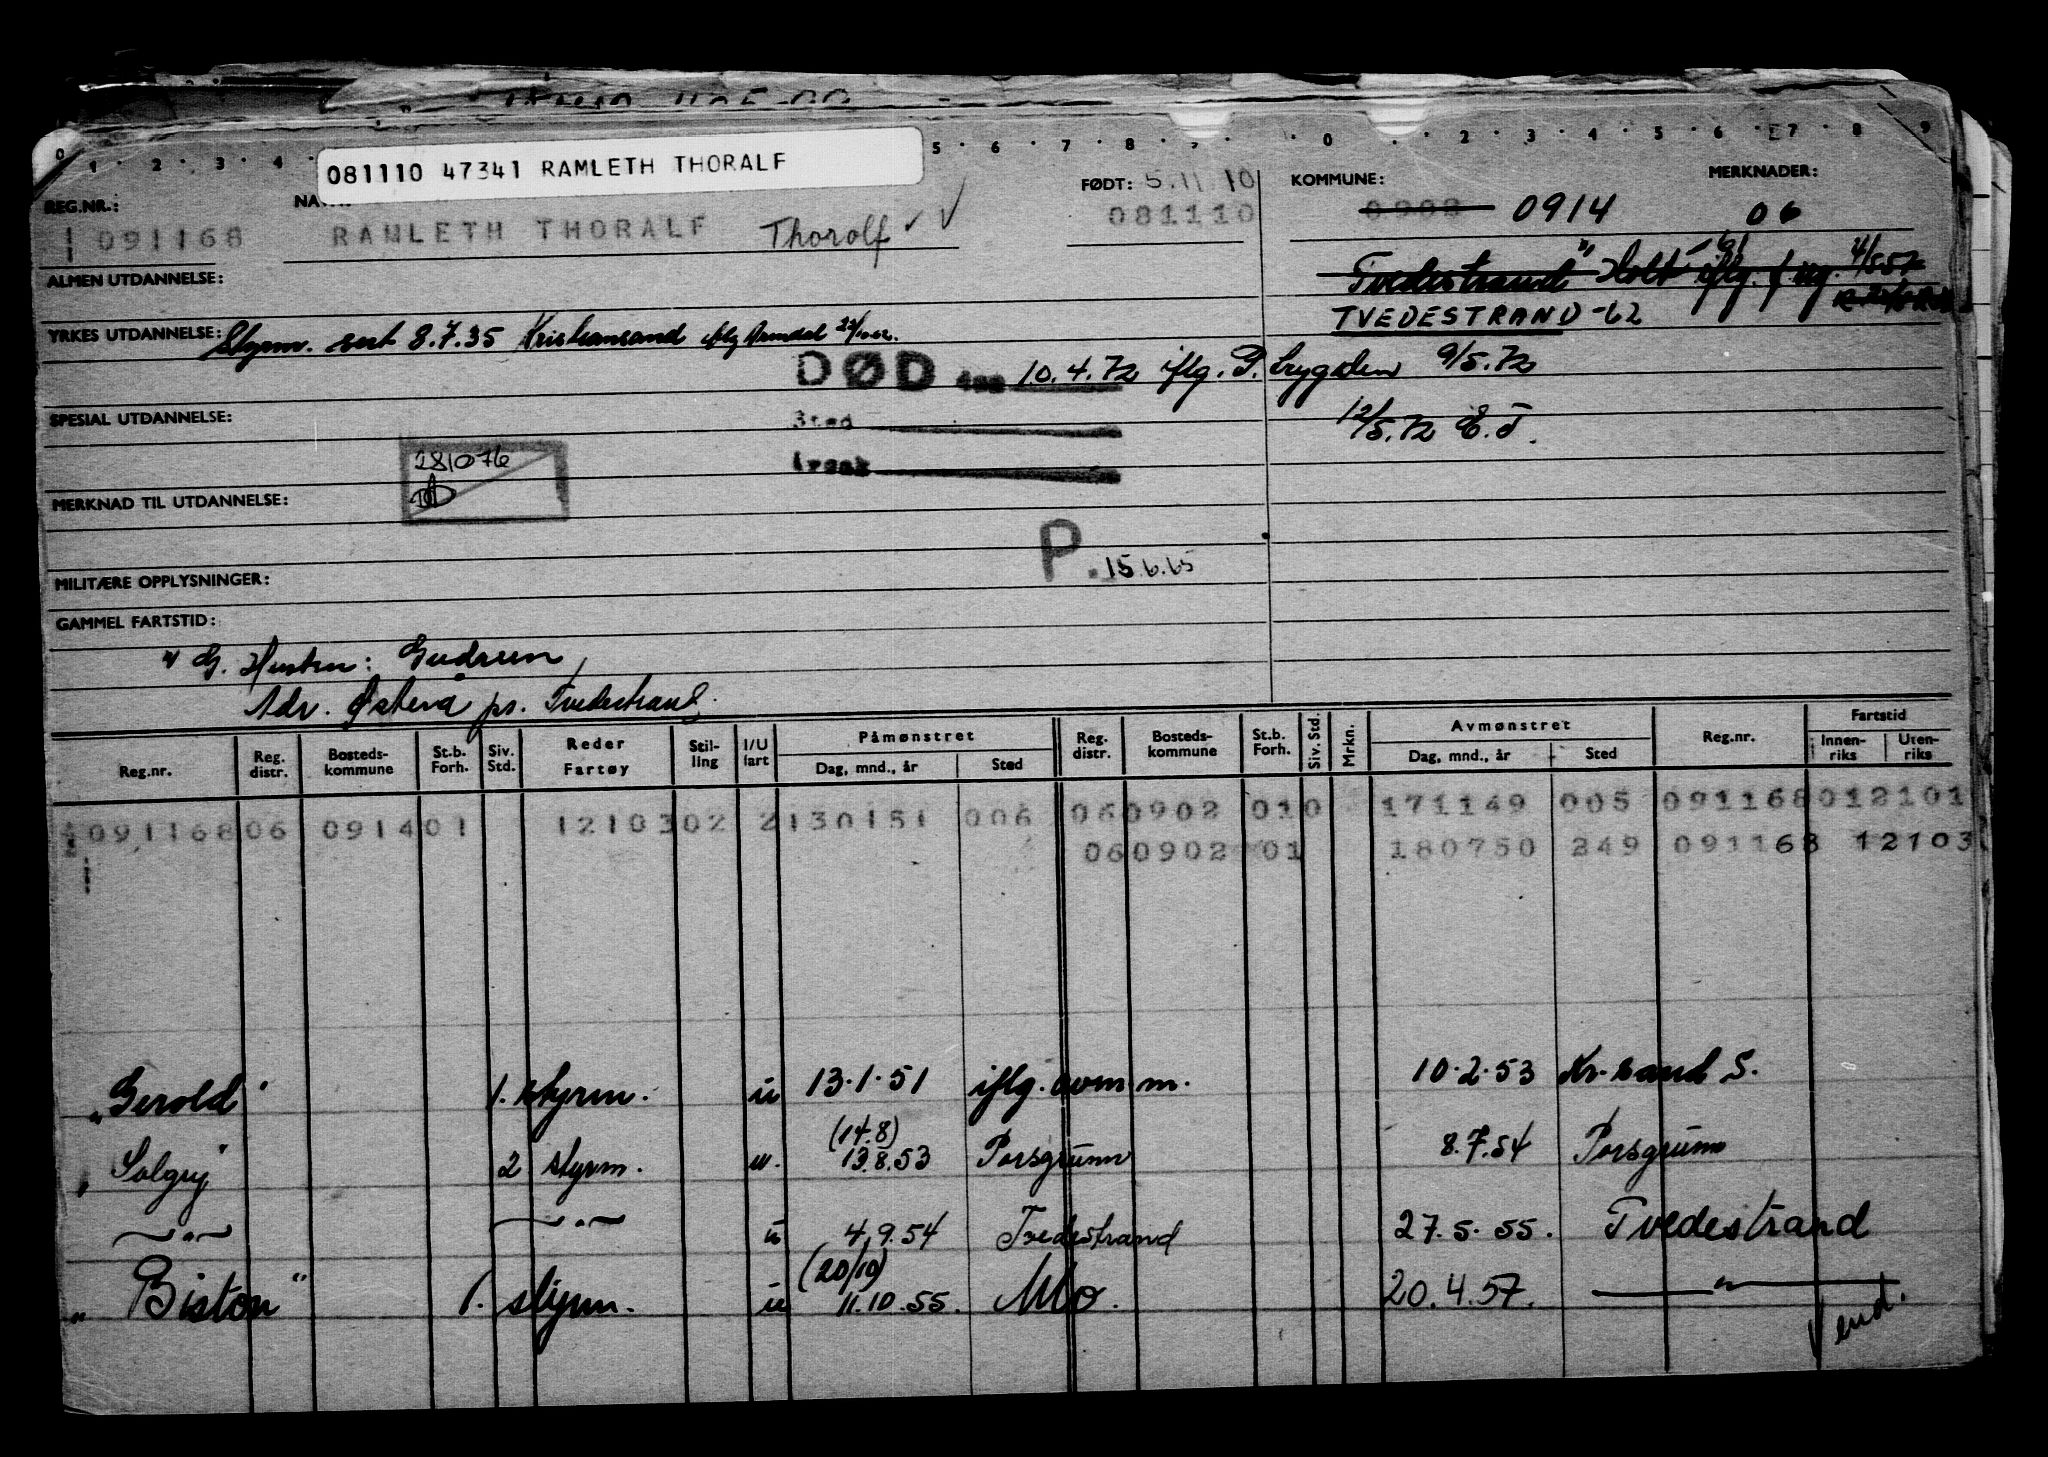 0 1 2 3 4 5 6 7 8 9 0 2 3 4 5 6 7 8 9
081110 47341 RAMLETH THORALF
REG.NR.: FØDT: 5.11.10 KOMMUNE: MERKNADER:
091168 RAMLETH THORALF Thorolf 081110 0903 0914 06
ALMEN UTDANNELSE: Tvedestrand Holt iflg.
YRKES UTDANNELSE: Styrm. sert 8.7.35 Kristiansand iflg Arendal TVEDESTRAND -62
DØD den 10.4.72 iflg. P. trygden 9/5.72
SPESIAL UTDANNELSE: Sted 12/5.72 E.T.
281076 Årsak
MERKNAD TIL UTDANNELSE:
P. 15.6.65
MILITÆRE OPPLYSNINGER:
GAMMEL FARTSTID:
G. Hustru: Gudrun,
Adr. Østerå ps. Tvedestrand.
Reg.nr. Reg. distr. Bosteds-kommune St.b. Forh. Siv. Std. Reder Fartøy Stil-ling I/U fart Påmønstret Dag, mnd., år Sted Reg. distr. Bosteds-kommune St.b. Forh. Siv. Std. Mrkn. Avmønstret Dag, mnd., år Sted Reg.nr. Fartstid Innen-riks Uten-riks
091168 06 0914 01 12103 02 2 130151 006 06 0902 01 0 171149 005 091168 012101
06 0902 01 180750 249 091168 12103
"Gerold" 1. styrm. u 13.1.51 iflg. avm.m. 10.2.53 Kr.sand S.
(14.8)
"Solgry" 2 styrm. u. 13.8.53 Porsgrunn 8.7.54 Porsgrunn
—"— —"— u 4.9.54 Tvedestrand 27.5.55. Tvedestrand
(20/10)
"Biston" 1. styrm. u 11.10.55. Mo. 20.4.57. —"—
Vend.